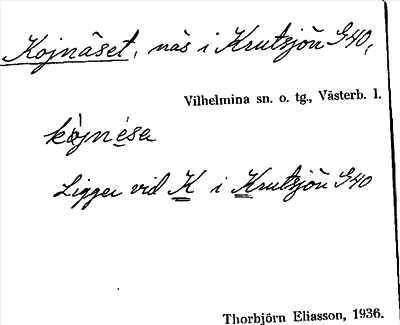 Kojnäset, näs i Krutsjön G40,
Vilhelmina sn. o. tg., Västerb. l.
kòjnesa
Ligger vid K i Krutsjön G40
Thorbjörn Eliasson, 1936.